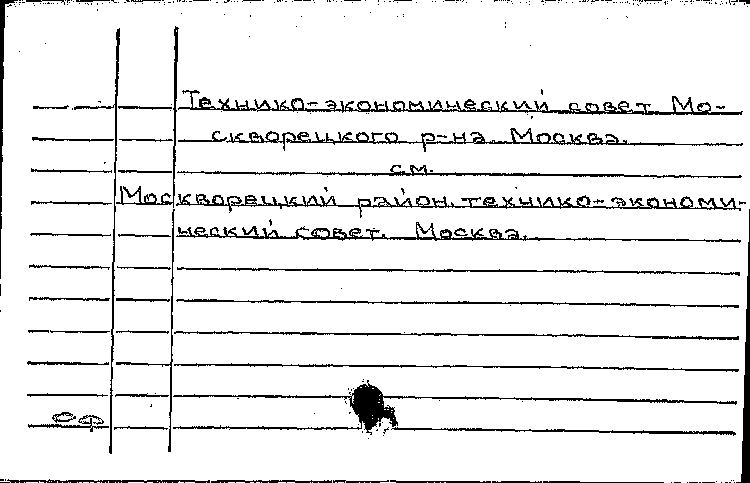 Технико-экономический совет Мо-
скворецкого р-на. Москва.
см.
Москворецкий район. технико-экономи-
ческий совет. Москва.
оф